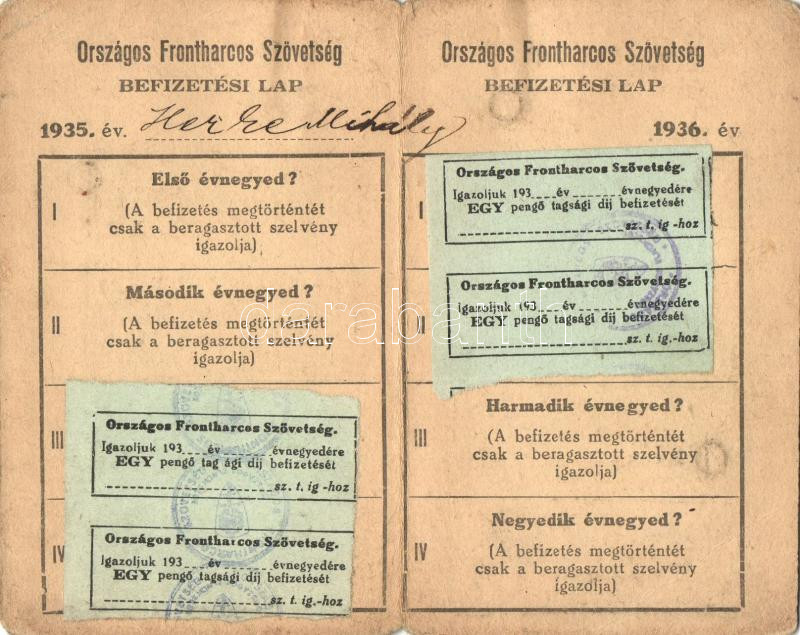 Országos Frontharcos Szövetség
BEFIZETÉSI LAP
1935. év. Herke Mihály
Első évnegyed?
I
(A befizetés megtörténtét
csak a beragasztott szelvény
igazolja)
Második évnegyed?
II
(A befizetés megtörténtét
csak a beragasztott szelvény
igazolja)
III
Országos Frontharcos Szövetség.
Igazoljuk 193___év______évnegyedére
EGY pengő tag sági díj befizetését
sz. t. ig -hoz
IV
Országos Frontharcos Szövetség.
Igazoljuk 193___év______évnegyedére
EGY pengő tagsági díj befizetését
sz. t. ig.-hoz
Országos Frontharcos Szövetség
BEFIZETÉSI LAP
1936. év
I
Országos Frontharcos Szövetség.
Igazoljuk 193___év______évnegyedére
EGY pengő tagsági díj befizetését
sz. t. ig -hoz
Országos Frontharcos Szövetség.
Igazoljuk 193___év______évnegyedére
EGY pengő tagsági díj befizetését
sz. t. ig.-hoz
Harmadik évnegyed?
III
(A befizetés megtörténtét
csak a beragasztott szelvény
igazolja)
Negyedik évnegyed?
IV
(A befizetés megtörténtét
csak a beragasztott szelvény
igazolja)
darabanth